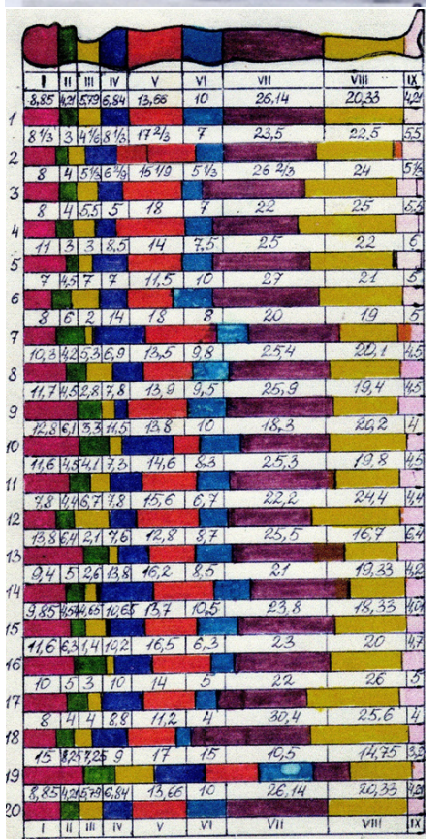 I II III IV V VI VII VIII IX
8,85 4,21 5,79 6,84 13,66 10 26,14 20,33 4,21
1
8 1/3 3 4 1/6 8 1/3 17 2/3 7 23,5 22,5 5,5
2
8 4 5 1/3 6 1/9 15 1/9 5 1/3 26 2/3 24 5 1/3
3
8 4 5,5 5 18 7 22 25 5,5
4
11 3 3 8,5 14 7,5 25 22 6
5
7 4,5 7 7 11,5 10 27 21 5
6
8 6 2 14 18 8 20 19 5
7
10,3 4,2 5,3 6,9 13,5 9,8 25,4 20,1 4,5
8
11,7 4,5 2,8 7,8 13,9 9,5 25,9 19,4 4,5
9
12,8 6,1 3,3 11,5 13,8 10 18,3 20,2 4
10
11,6 4,5 4,1 7,3 14,6 8,3 25,3 19,8 4,5
11
7,8 4,4 6,7 7,8 15,6 6,7 22,2 24,4 4,4
12
13,8 6,4 2,1 7,6 12,8 8,7 25,5 16,7 6,4
13
9,4 5 2,6 13,8 16,2 8,5 21 19,33 4,2
14
9,85 4,54 4,65 10,65 13,7 10,5 23,8 18,33
15
11,6 6,3 1,4 10,2 16,5 6,3 23 20 4,7
16
10 5 3 10 14 5 22 26 5
17
8 4 4 8,8 11,2 4 30,4 25,6 4
18
15 8,25 7,25 9 17 15 10,5 14,75
19
8,85 4,21 5,79 6,84 13,66 10 26,14 20,33 4,21
20
I II III IV V VI VII VIII IX